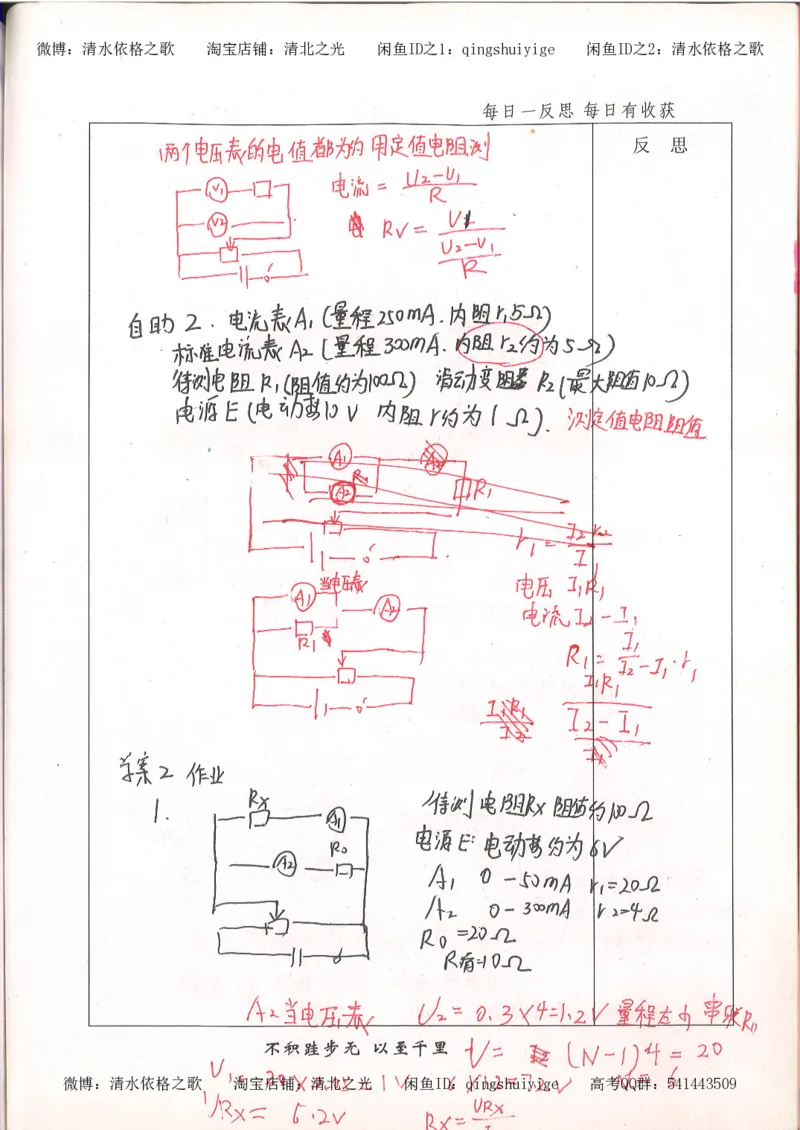 微博：清水依格之歌 淘宝店铺：清北之光 闲鱼ID之1：qingshuiyige 闲鱼ID之2：清水依格之歌
每日一反思 每日有收获
反 思
两个电压表的电值都为约 用定值电阻测
V1
电流 = U2-U1 / R
V2
RV = U1 / (U2-U1 / R)
自助 2. 电流表A1 (量程250mA. 内阻r1 5Ω)
标准电流表 A2 (量程300mA. 内阻r2约为5Ω)
待测电阻R1 (阻值约为100Ω) 滑动变阻器 R2 (最大阻值10Ω)
电源E (电动势10V 内阻r约为1Ω). 测定值电阻阻值
A1 A2
A2 R1
r1 = I2 r2 / I
当电压表
电压 I1R1
A1 A2
电流 I2-I1
R1
R1 = I1 / I2-I1 · r1
I1R1
I2-I1
学案2 作业
1.
Rx A1
待测电阻Rx 阻值约100Ω
R0
电源E: 电动势约为6V
A2
A1 0-50mA r1=20Ω
A2 0-300mA r2=4Ω
R0=20Ω
R滑=10Ω
A2当电压表 U2 = 0.3×4=1.2V 量程太小 串联R0
不积跬步无 以至千里
U = (N-1)4 = 20
微博：清水依格之歌 淘宝店铺：清北之光 闲鱼ID：qingshuiyige 高考QQ群：541443509
Rx = 6.2V
Rx = URx